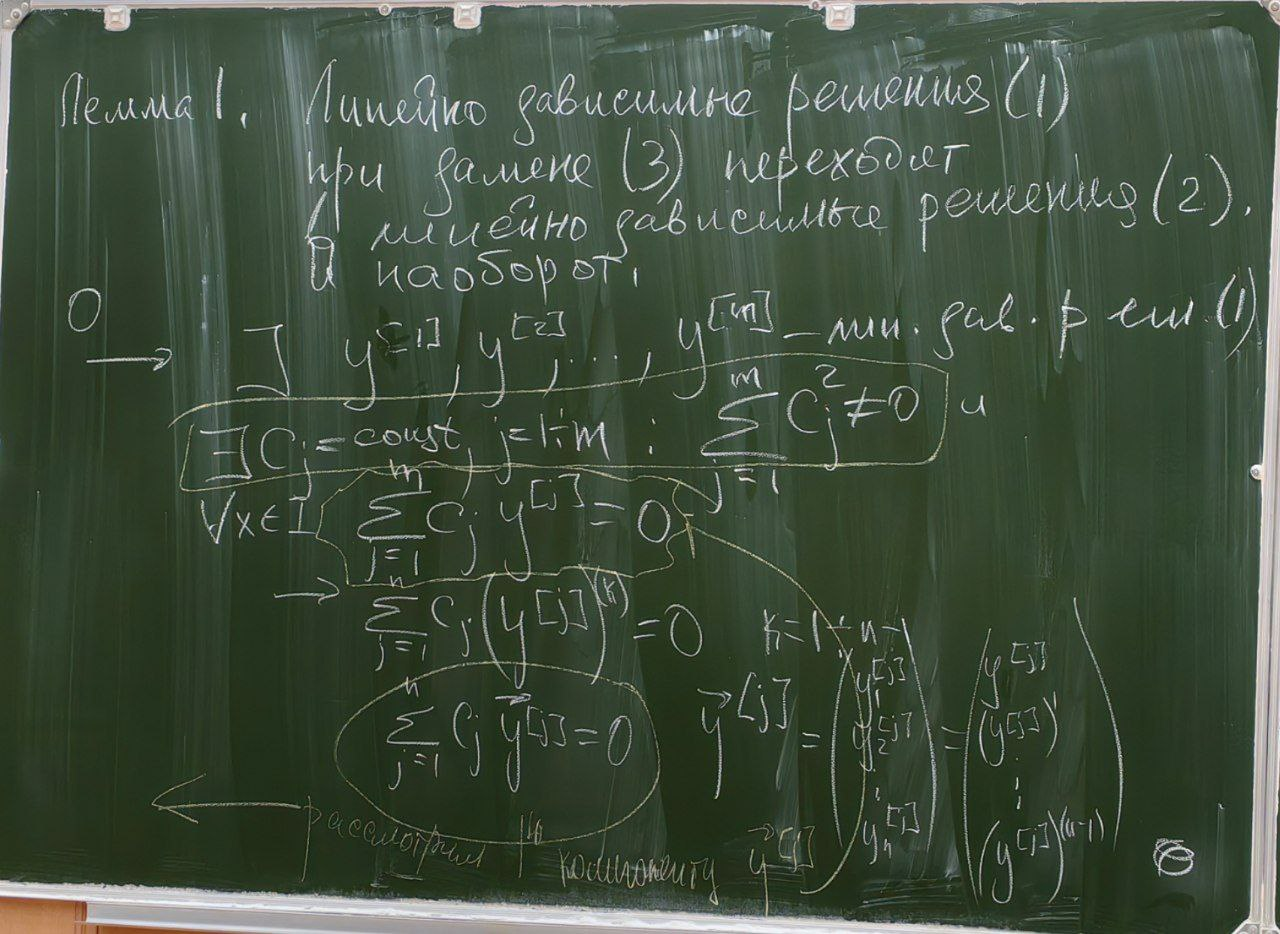 Лемма 1. Линейно зависимые решения (1)
при замене (3) переходят
в линейно зависимые решения (2).
И наоборот.
0
→ ∃ y^[1], y^[2], ..., y^[m] – лин. зав. реш (1)
∃ C_j = const, j = 1÷m : ∑_{j=1}^{m} C_j^2 ≠ 0 и
∀x∈I ∑_{j=1}^{m} C_j y^[j] = 0
→ ∑_{j=1}^{n} C_j (y^[j])^(k) = 0 k = 1÷n-1
∑_{j=1}^{n} C_j \vec{y}^[j] = 0 \vec{y}^[j] = (y_1^[j] y_2^[j] ⋮ y_n^[j]) = (y^[j] (y^[j])' ⋮ (y^[j])^(n-1))
← рассмотрим 1ю компоненту \vec{y}^[j]